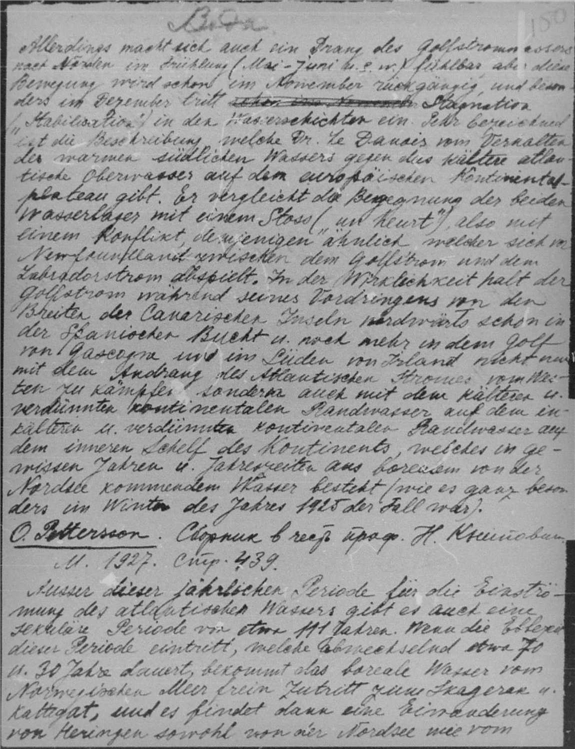 Вода
150
Allerdings macht sich auch ein Drang des Golfstromwassers
nach Norden im Frühling (Mai-Juni u.s.w.) fühlbar aber diese
Bewegung wird schon im November rückgängig, und beson-
ders im Dezember tritt Stagnation
("Stabilisation") in den Wasserschichten ein. Sehr bezeichnend
ist die Beschreibung, welche Dr. Le Danois vom Verhalten
des warmen südlichen Wassers gegen dies kältere atlan-
tische Oberwasser auf dem europäischen Kontinental-
plateau gibt. Er vergleicht die Begegnung der beiden
Wasserlager mit einem Stoss ("un heurt"), also mit
einem Konflikt, demjenigen ähnlich welcher sich in
Newfoundland zwischen dem Golfstrom und dem
Labradorstrom abspielt. In der Wirklichkeit hat der
Golfstrom während seines Vordringens von den
Breiten der Canarischen Inseln nordwärts schon in
der Spanischen Bucht u. noch mehr in dem Golf
von Gascogne und im Süden von Irland nicht nur
mit dem Andrang des Atlantischen Stromes vom Wes-
ten zu kämpfen sondern auch mit dem kälteren u.
verdünnten kontinentalen Randwasser auf dem in-
kälteren u. verdünnten kontinentalen Randwasser auf
dem inneren Schelf des Kontinents, welches in ge-
wissen Jahren u. Jahreszeiten aus borealem von der
Nordsee kommendem Wasser besteht (wie es ganz beson
ders im Winter des Jahres 1925 der Fall war).
O. Pettersson. Сборник в честь проф. Н. Книповича
М. 1927. стр. 439.
Ausser dieser jährlichen Periode für die Einströ-
mung des atlantischen Wassers gibt es auch eine
sekuläre Periode von etwa 111 Jahren. Wenn die
dieser Periode eintritt, welche abwechselnd etwa 70
u. 30 Jahre dauert, bekommt das boreale Wasser vom
Norwegischen Meer frein Zutritt zum Skagerak u.
Kattegat, und es findet dann eine Einwanderung
von Heringen sowohl von der Nordsee wie vom